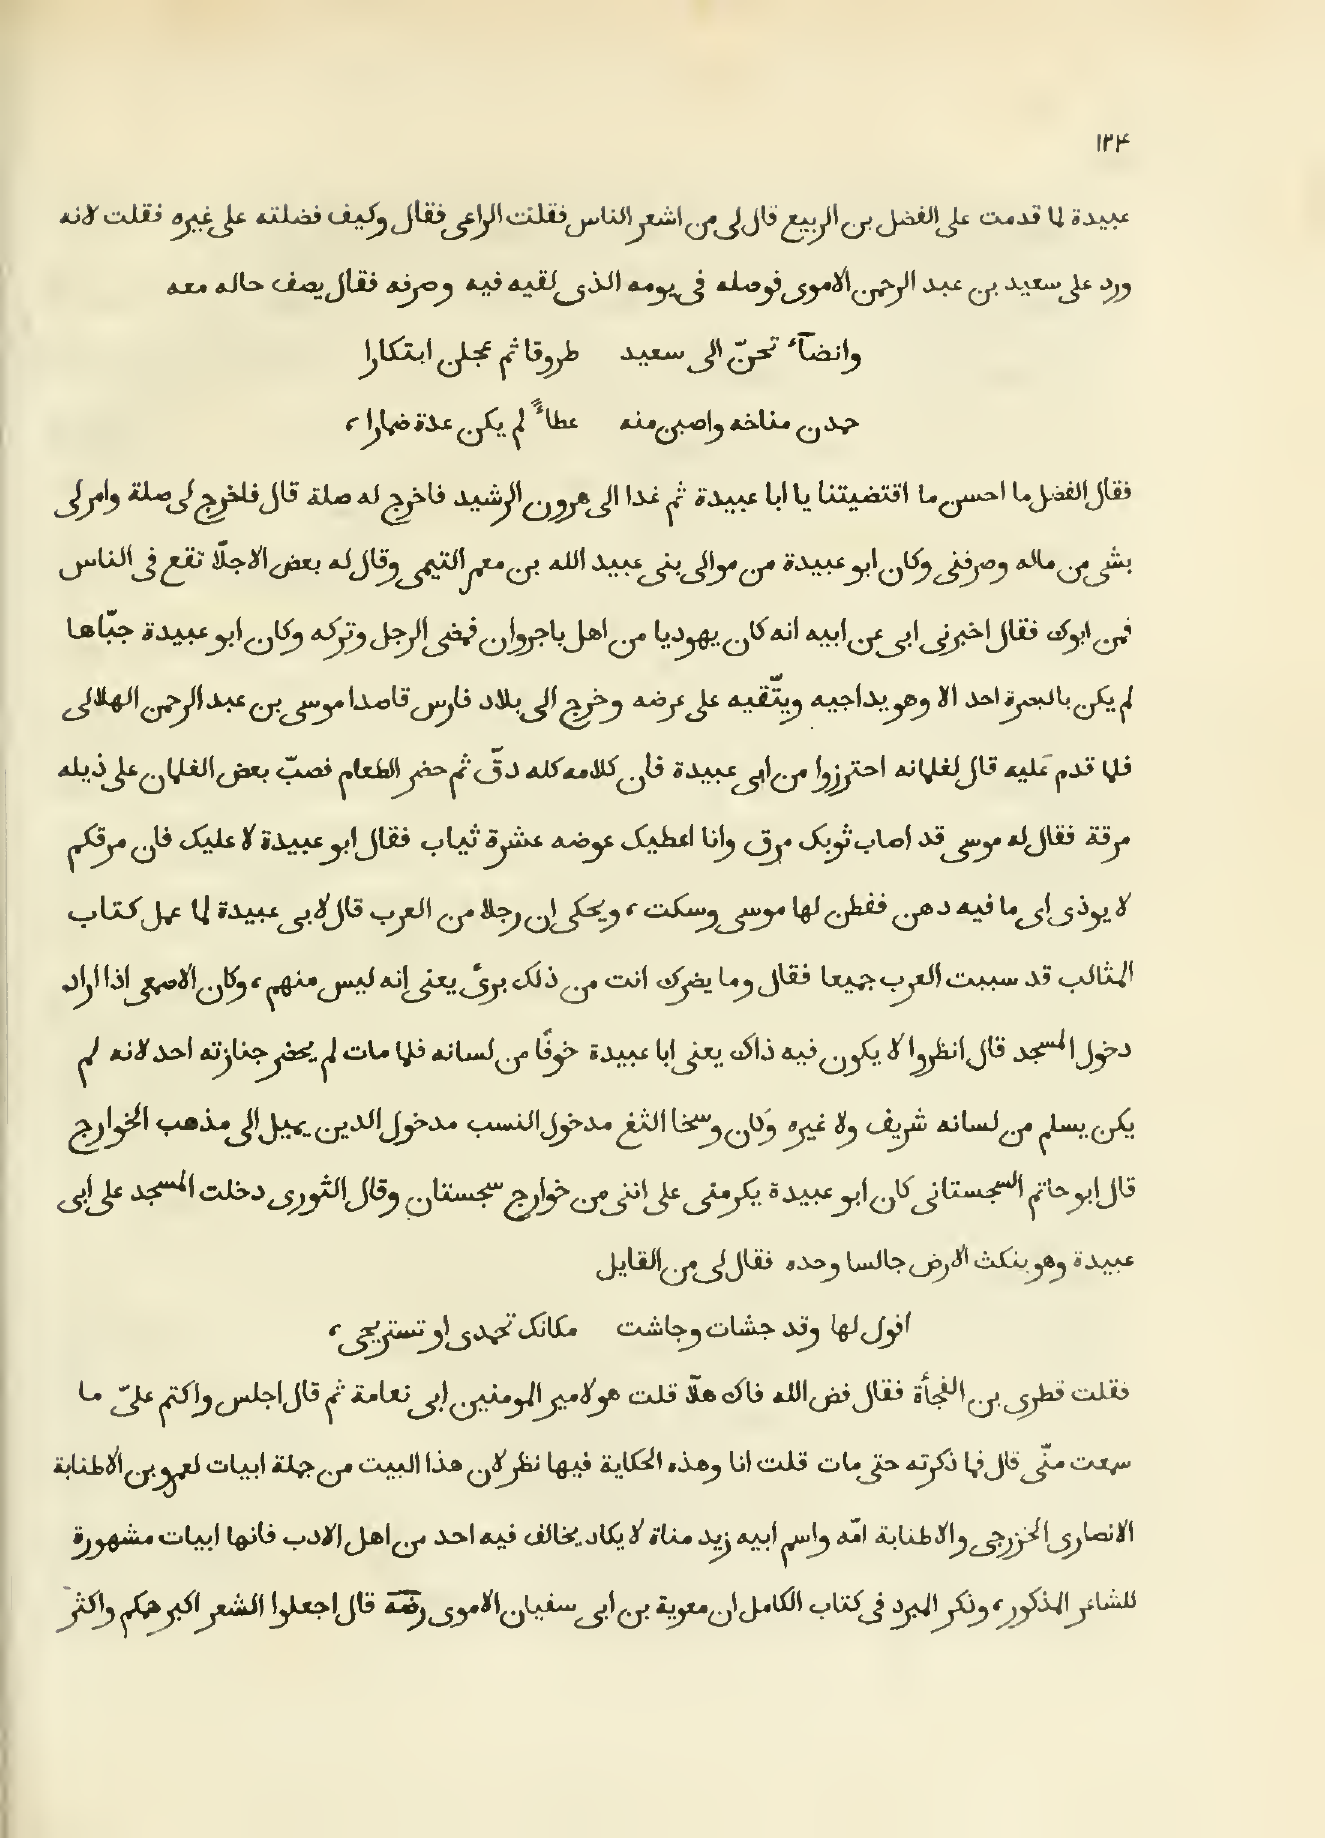 ١٢۴
عبيدة لما قدمت على الفضل بن الربيع قال لى من اشعر الناس فقلت الراعى فقال وكيف فضلته على غيره فقلت لانه
ورد على سعيد بن عبد الرحمن الاموى فوصله فى يومه الذى لقيه فيه وصرفه فقال يصف حاله معه
وانضآء تحنّ الى سعيد طروقا ثم عجلن ابتكارا
حمدن مناخه واصبن منه عطاءً لم يكن عدة ضمارا،
فقال الفضل ما احسن ما اقتضيتنا يا ابا عبيدة ثم غدا الى هرون الرشيد فاخرج له صلة قال فاخرج لى صلة وامر لى
بشى من ماله وصرفنى وكان ابو عبيدة من موالى بنى عبيد الله بن معمر التيمى وقال له بعض الاجلّا تقع فى الناس
فمن ابوك فقال اخبرنى ابى عن ابيه انه كان يهوديا من اهل باجروان فمضى الرجل وتركه وكان ابو عبيدة جبّاها
لم يكن بالبصرة احد الا وهو يداجيه ويتّقيه على عرضه وخرج الى بلاد فارس قاصدا موسى بن عبد الرحمن الهلالى
فلما قدم عَليه قال لغلمانه احترزوا من ابى عبيدة فان كلامه كله دقّ ثم حضر الطعام فصبّ بعض الغلمان على ذيله
مرقة فقال له موسى قد اصاب ثوبك مرق وانا اعطيك عوضه عشرة ثياب فقال ابو عبيدة لا عليك فان مرقكم
لا يوذى اى ما فيه دهن ففطن لها موسى وسكت، ويحكى ان رجلا من العرب قال لابى عبيدة لما عمل كتاب
المثالب قد سببت العرب جميعا فقال وما يضرك انت من ذلك برئ يعنى انه ليس منهم، وكان الاصمعى اذا اراد
دخول المسجد قال انظروا لا يكون فيه ذاك يعنى ابا عبيدة خوفًا من لسانه فلما مات لم يحضر جنازته احد لانه لم
يكن يسلم من لسانه شريف ولا غيره وَكان وسخا الثغ مدخول النسب مدخول الدين يميل الى مذهب الخوارج
قال ابو حاتم السجستانى كان ابو عبيدة يكرمنى على اننى من خوارج سجستان وقال الثورى دخلت المسجد على ابى
عبيدة وهو ينكث الارض جالسا وحده فقال لى من القايل
اقول لها وقد جشات وجاشت مكانك تحمدى او تستريحى،
فقلت قطرى بن الفجأة فقال فض الله فاك هلّا قلت هو لامير المومنين ابى نعامة ثم قال اجلس واكتم علىّ ما
سمعت منّى قال فما ذكرته حتى مات قلت انا وهذه الحكاية فيها نظر لان هذا البيت من جملة ابيات لعمرو بن الاطنابة
الانصارى الخزرجى والاطنابة امّه واسم ابيه زيد مناة لا يكاد يخالف فيه احد من اهل الادب فانها ابيات مشهورة
للشاعر المذكور، وذكر المبرد فى كتاب الكامل ان معوية بن ابى سفيان الاموى رضّه قال اجعلوا الشعر اكبر همكم واكثر